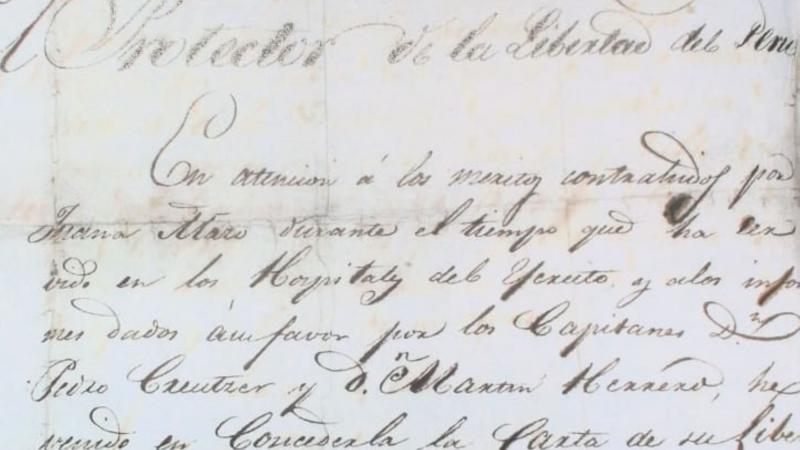 Protector de la Libertad del Peru
En atencion á los meritos contrahidos por
Juana Alfaro durante el tiempo que ha ser
vido en los Hospitales del Exercito, y alos infor
mes dados ásu favor por los Capitanes D.n
Pedro Creutzer y D.n Martin Herrero, he
venido en Concederla la Carta de su Liber